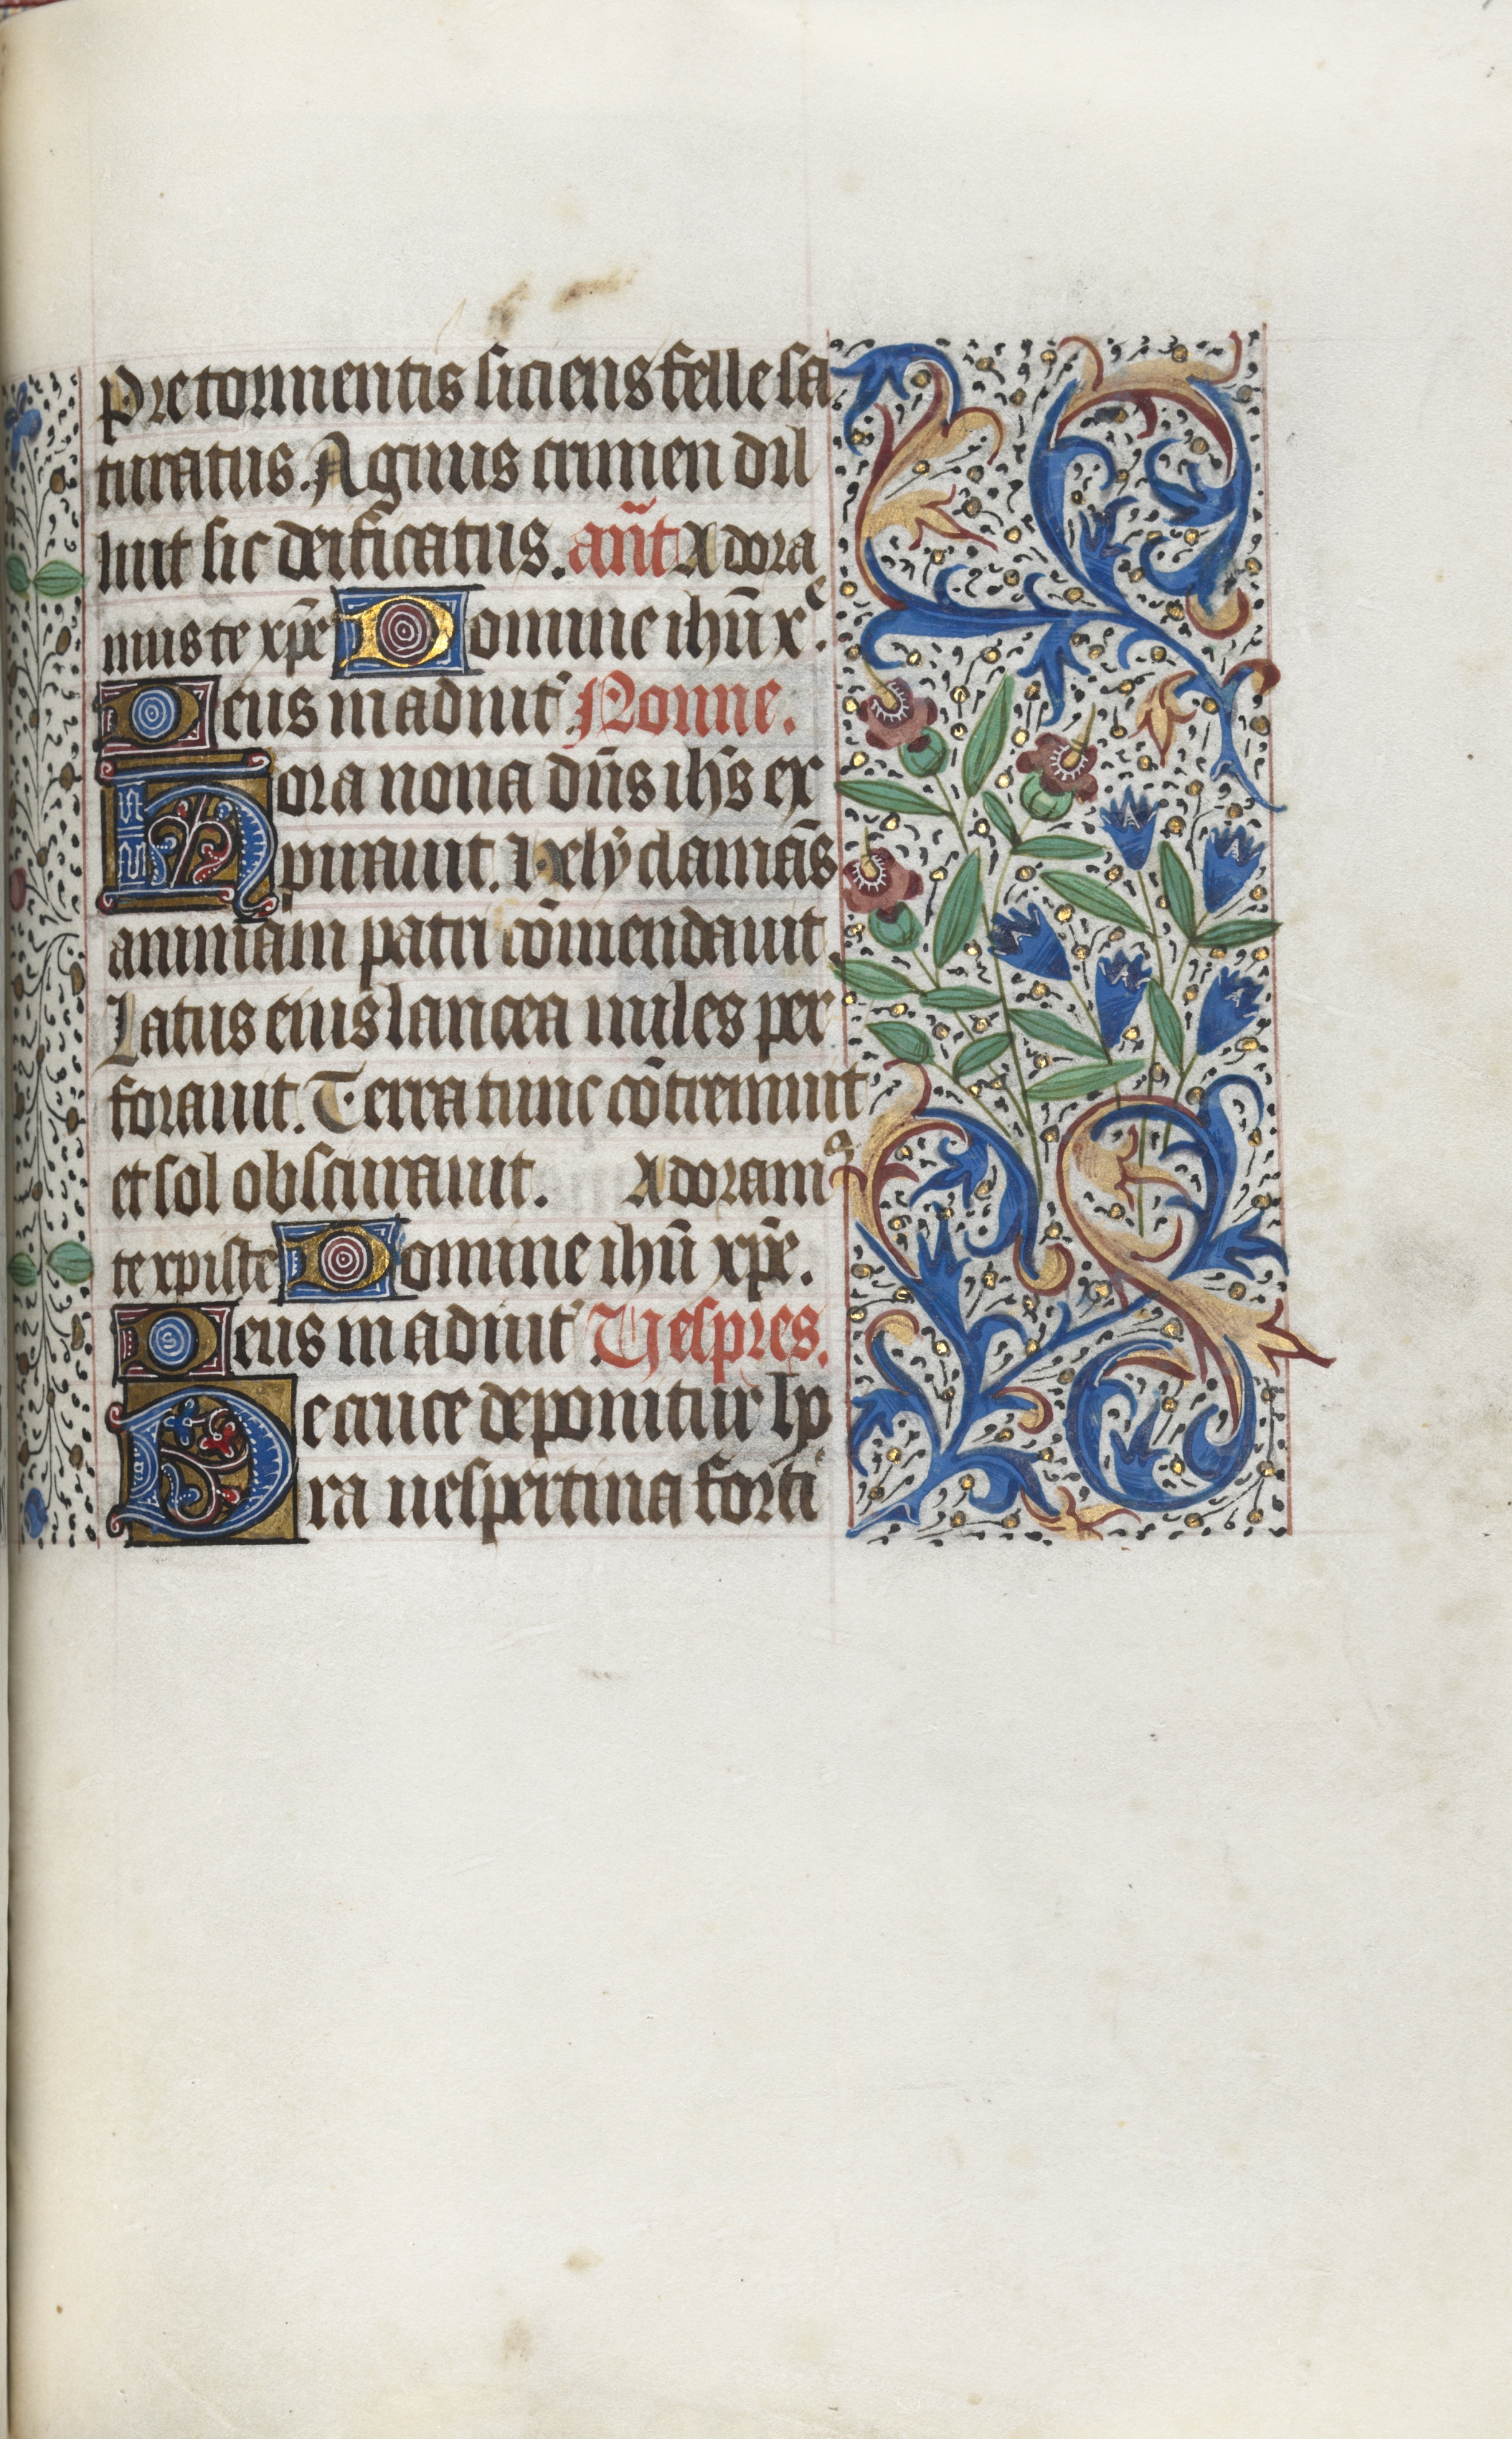 Pre tormentis siciens felle sa
turatus. Agnus crimen dil
luit sic deificatus. añt Adora
mus te xp̄e Domine ihū x.ͤ
Deus in adiut᷒ Nonne.
Hora nona dn̄s ihs̄ ex
pirauit. Hely clamās
animam patri cōmendauit.
Latus eius lancea miles per
forauit. Terra tunc cōtremuit
et sol obscurauit. Adoramꝰ
te xpiste Domine ihū xp̄e.
Deus in adiut᷒ Vespres.
De cruce deponitur ho
ra uespertina forti